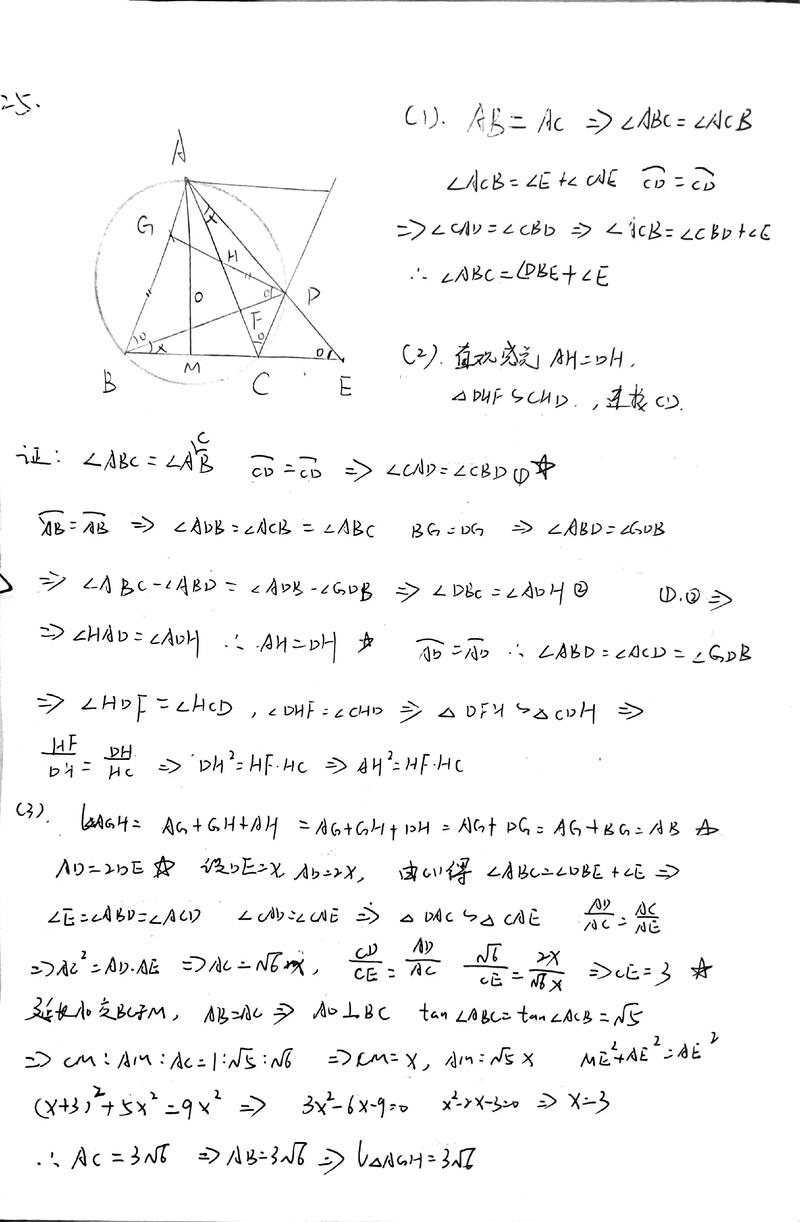 25.
A
G
H
O
D
F
B
M
C
E
x
x
(1). AB = AC ⇒ ∠ABC = ∠ACB
∠ACB = ∠E + ∠CAE CD⌒ = CD⌒
⇒ ∠CAD = ∠CBD ⇒ ∠ACB = ∠CBD + ∠E
∴ ∠ABC = ∠DBE + ∠E
(2). 直观感觉 AH = DH,
△DHF ∽ CHD. , 连接CD.
证: ∠ABC = ∠ACB CD⌒ = CD⌒ ⇒ ∠CAD = ∠CBD ① ☆
AB⌒ = AB⌒ ⇒ ∠ADB = ∠ACB = ∠ABC BG = DG ⇒ ∠ABD = ∠GDB
⇒ ∠ABC - ∠ABD = ∠ADB - ∠GDB ⇒ ∠DBC = ∠ADH ② ①.② ⇒
⇒ ∠HAD = ∠ADH ∴ AH = DH ☆ AD⌒ = AD⌒ ∴ ∠ABD = ∠ACD = ∠GDB
⇒ ∠HDF = ∠HCD , ∠DHF = ∠CHD ⇒ △DFH ∽ △CDH ⇒
HF/DH = DH/HC ⇒ DH² = HF·HC ⇒ AH² = HF·HC
(3). L△AGH = AG + GH + AH = AG + GH + DH = AG + DG = AG + BG = AB ☆
AD = 2DE ☆ 设DE = x AD = 2x, 由(1)得 ∠ABC = ∠DBE + ∠E ⇒
∠E = ∠ABD = ∠ACD ∠CAD = ∠CAE ⇒ △DAC ∽ △CAE AD/AC = AC/AE
⇒ AC² = AD·AE ⇒ AC = √6x, CD/CE = AD/AC √6/CE = 2x/√6x ⇒ CE = 3 ☆
延长AO交BC于M, AB = AC ⇒ AO⊥BC tan∠ABC = tan∠ACB = √5
⇒ CM : AM : AC = 1 : √5 : √6 ⇒ CM = x, AM = √5x ME² + AE² = AE²
(x+3)² + 5x² = 9x² ⇒ 3x² - 6x - 9 = 0 x² - 2x - 3 = 0 ⇒ x = 3
∴ AC = 3√6 ⇒ AB = 3√6 ⇒ L△AGH = 3√6